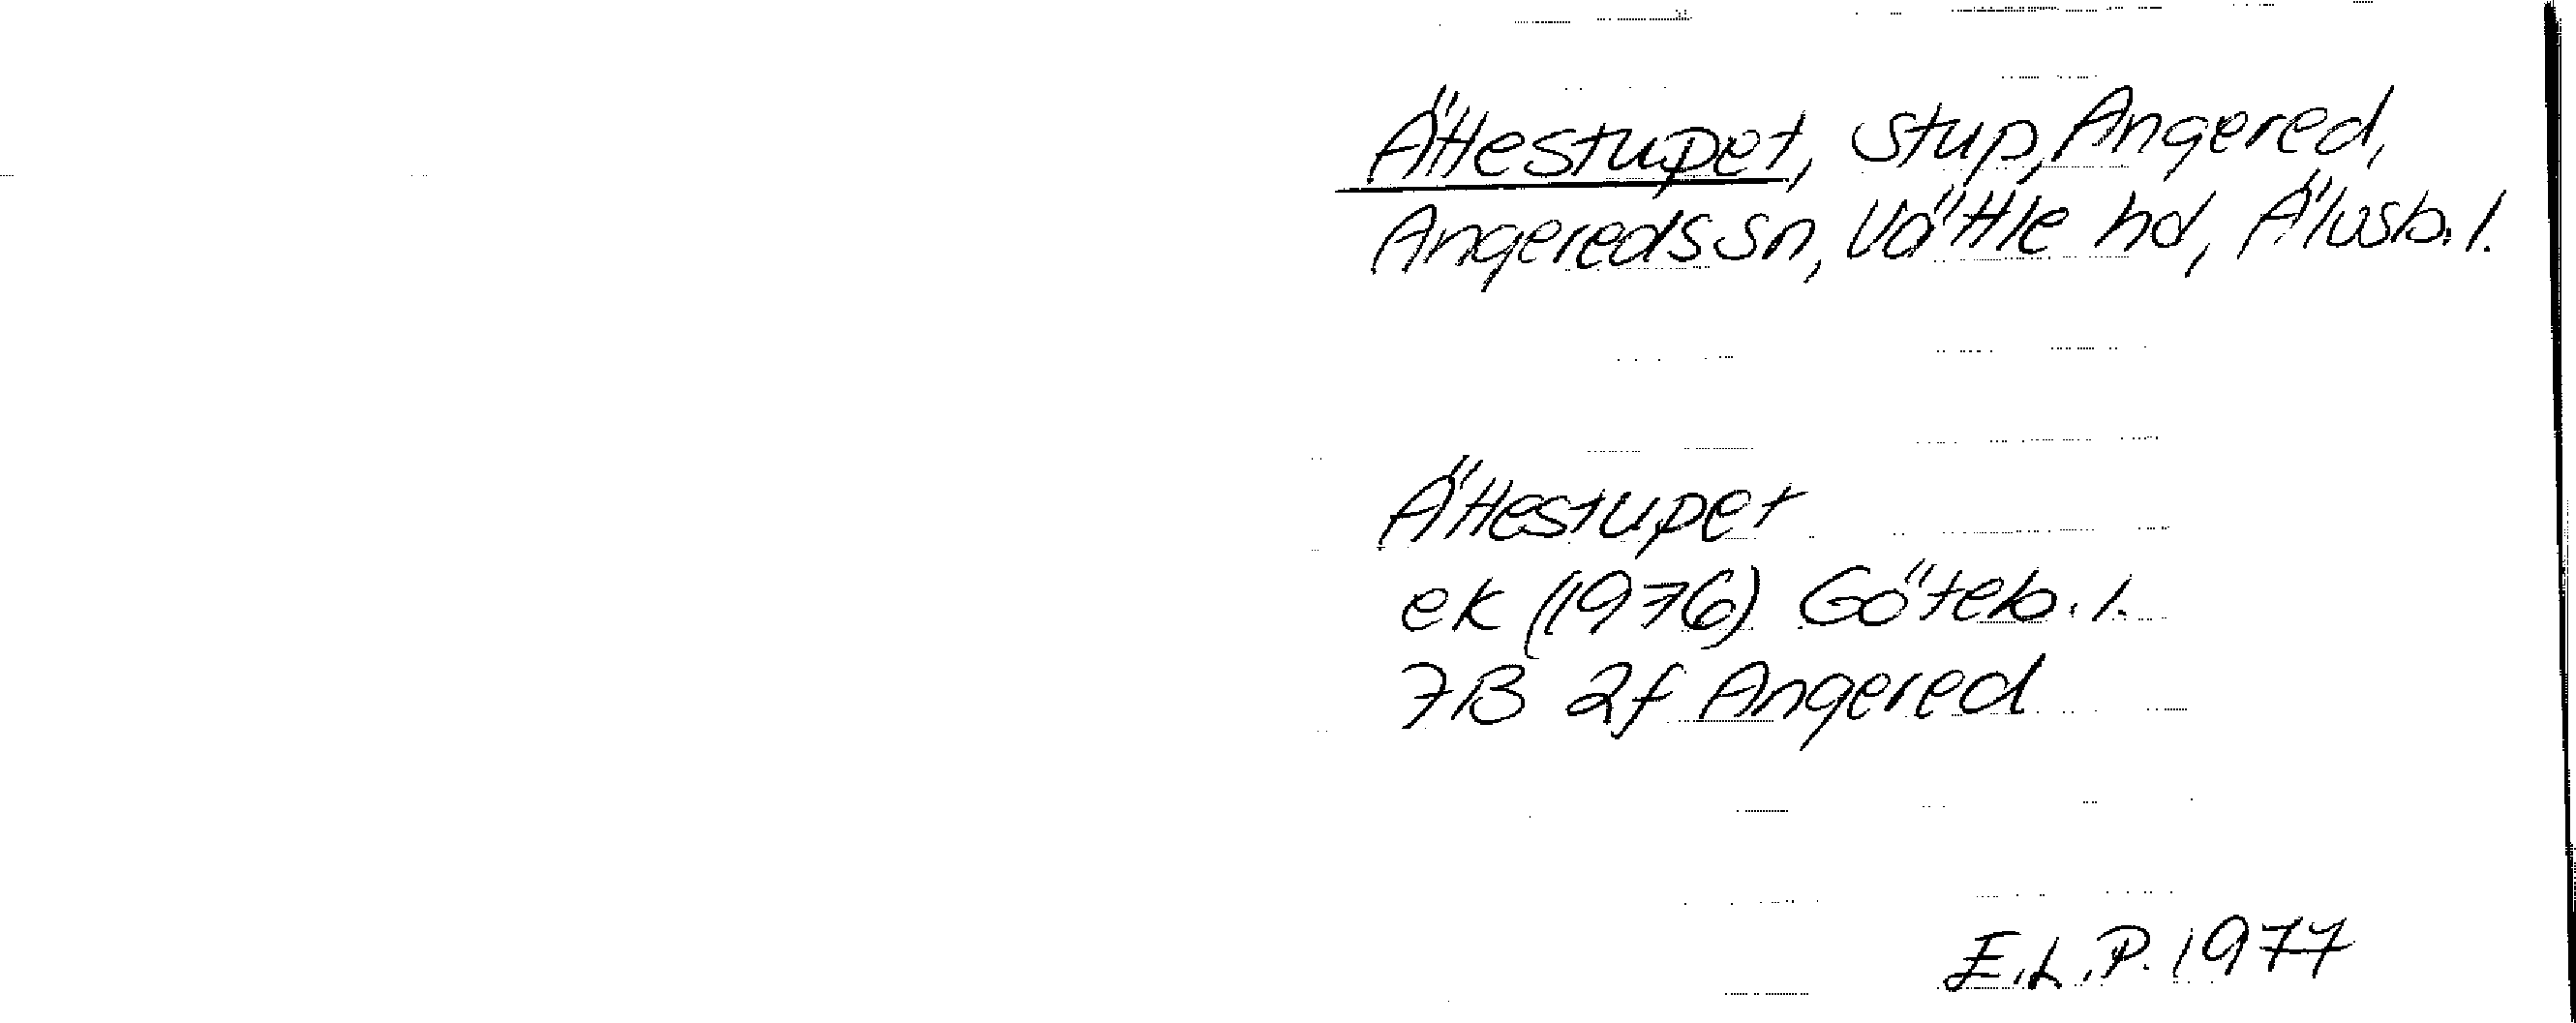 Ättestupet, stup, Angered,
Angereds sn, Vättle hd, Älvsb. l.
Ättestupet
ek (1976) Göteb. l.
7B 2f Angered
E.L.P. 1977